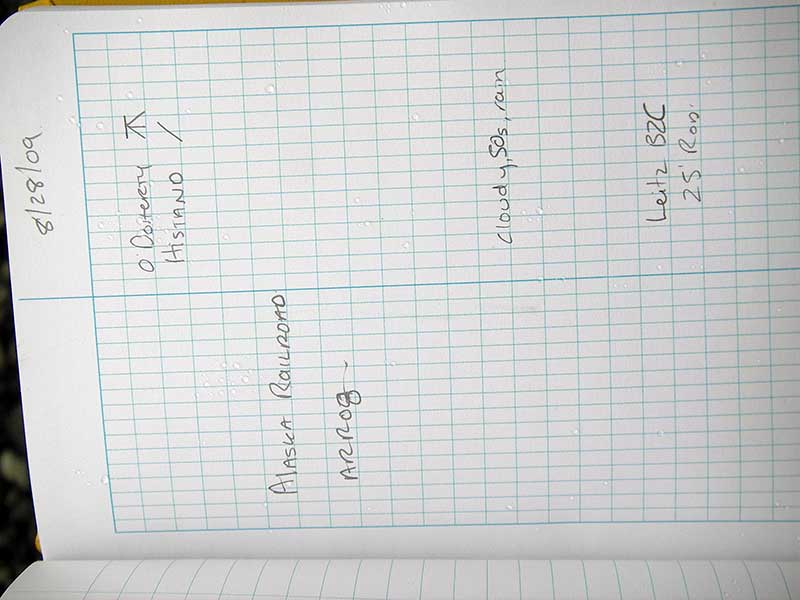 8/28/09
O'Doherty
HISTAND /
ALASKA RAILROAD
cloudy, 50s, rain
Leitz B2C
25' ROD.